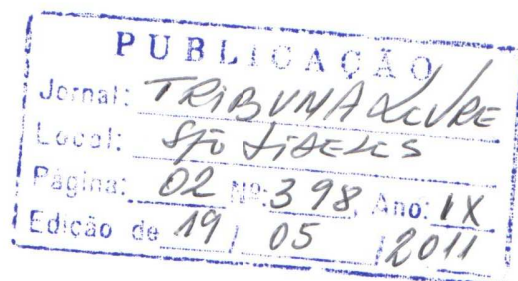 PUBLICAÇÃO
Jornal: TRIBUNA LIVRE
Local: SÃO FIDELIS
Página: 02 Nº: 398, Ano: IX
Edição de 19 / 05 / 2011